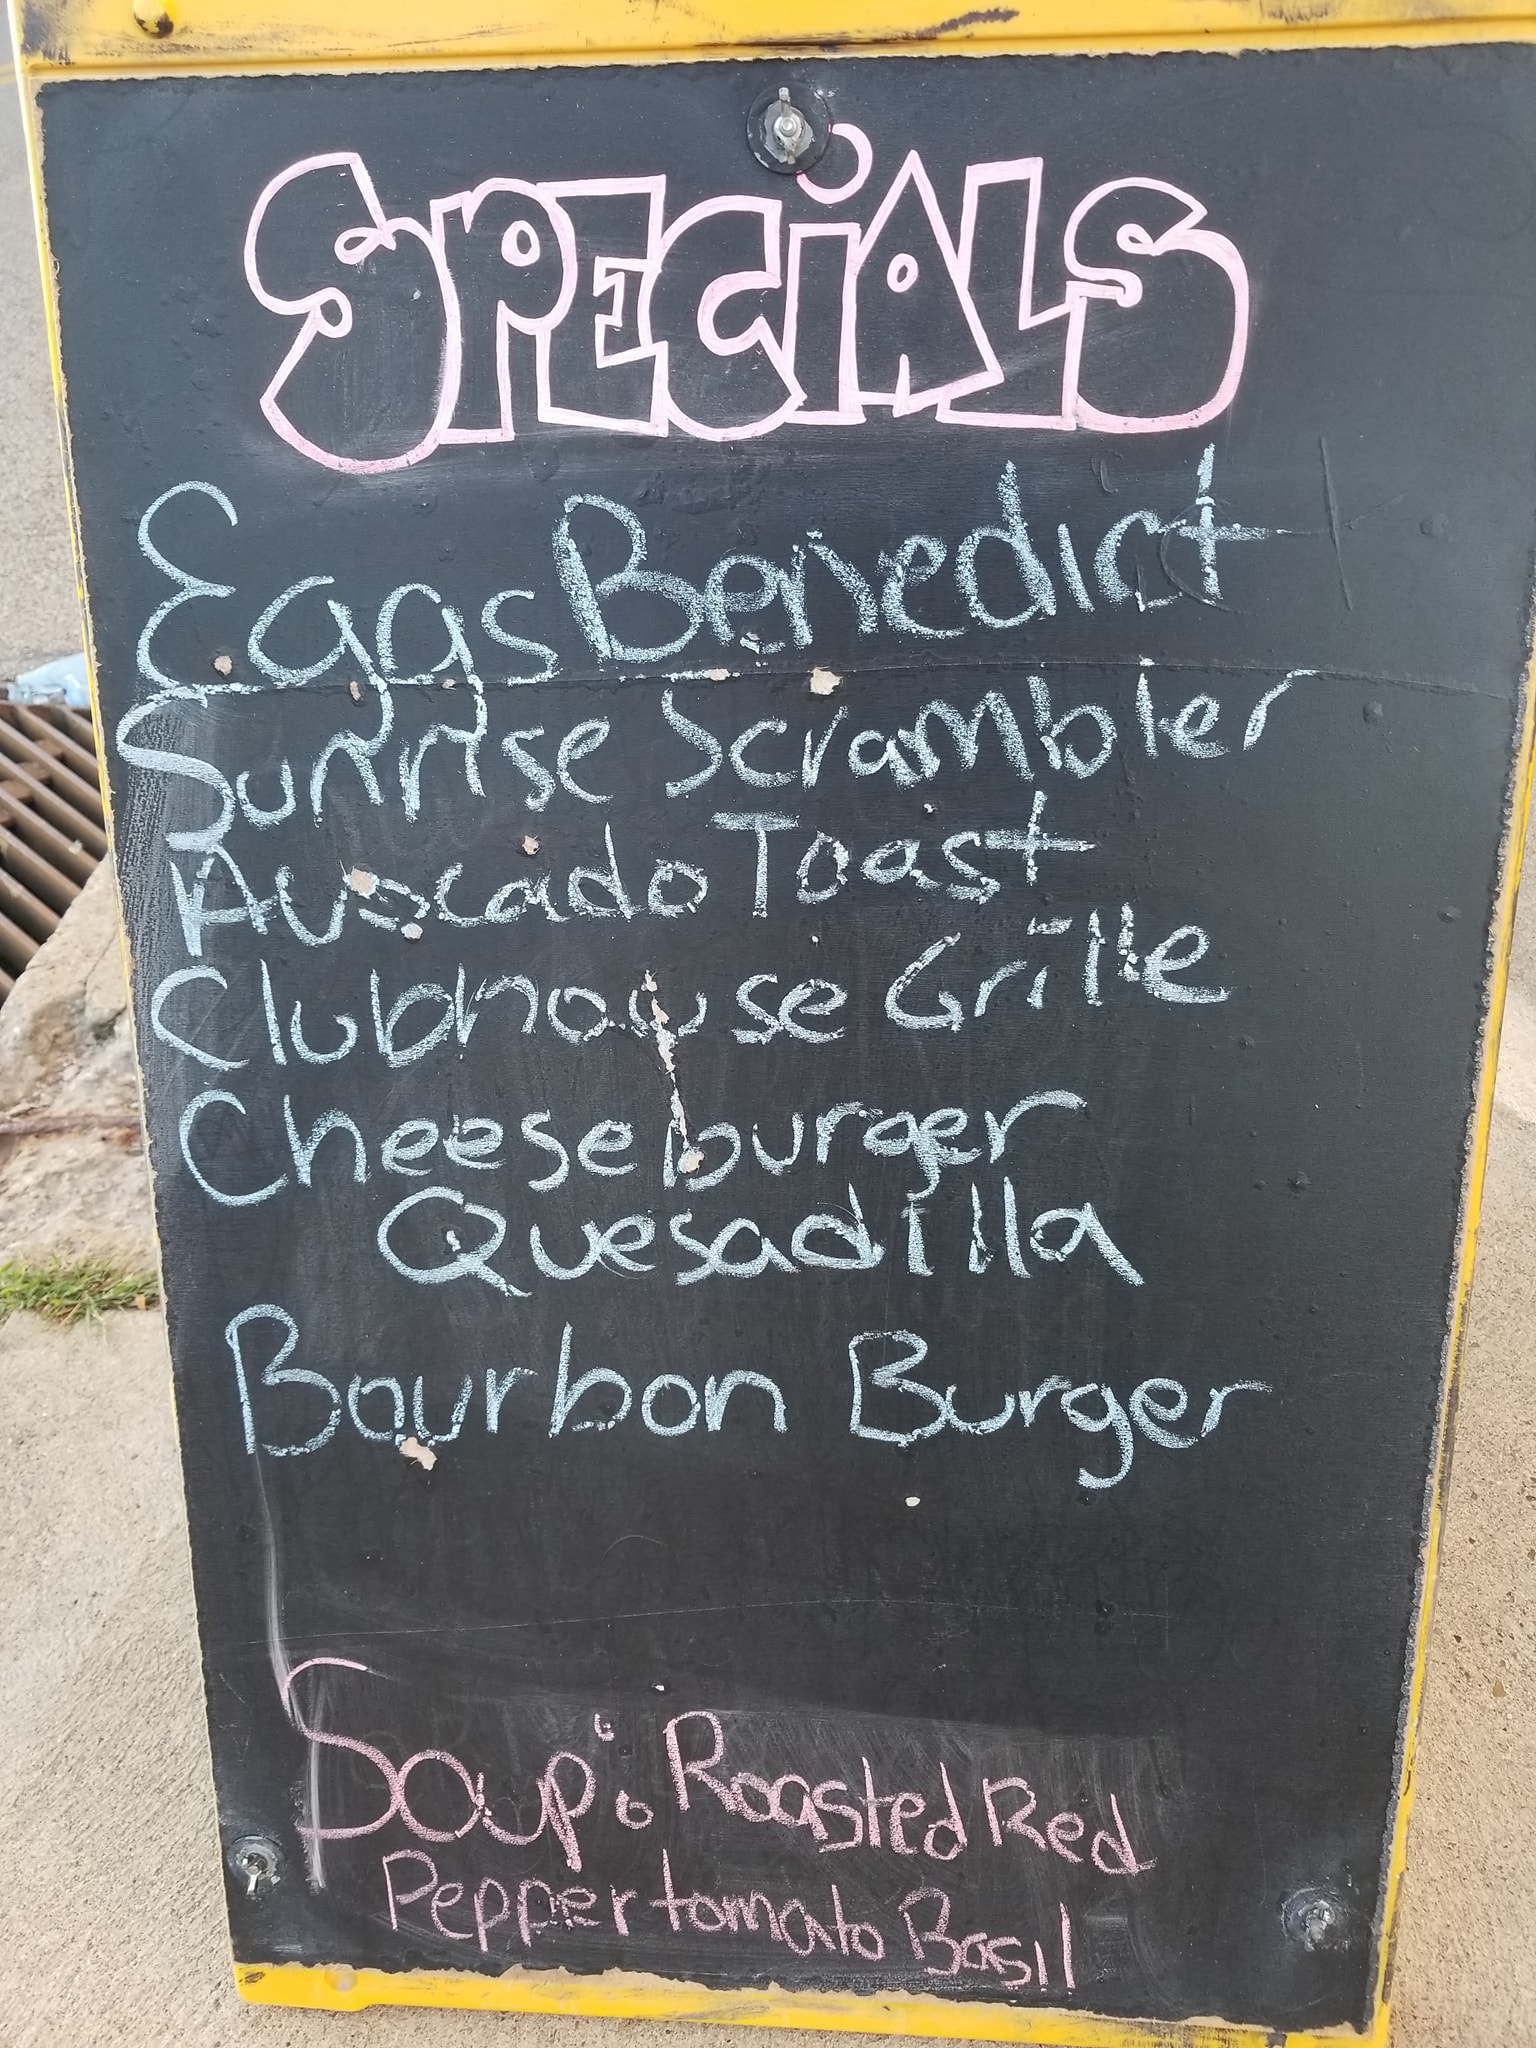 SPECiALS
Eggs Benedict
Sunrise Scrambler
Avocado Toast
Clubhouse Grille
Cheeseburger
Quesadilla
Bourbon Burger
Soup: Roasted Red
Pepper tomato Basil